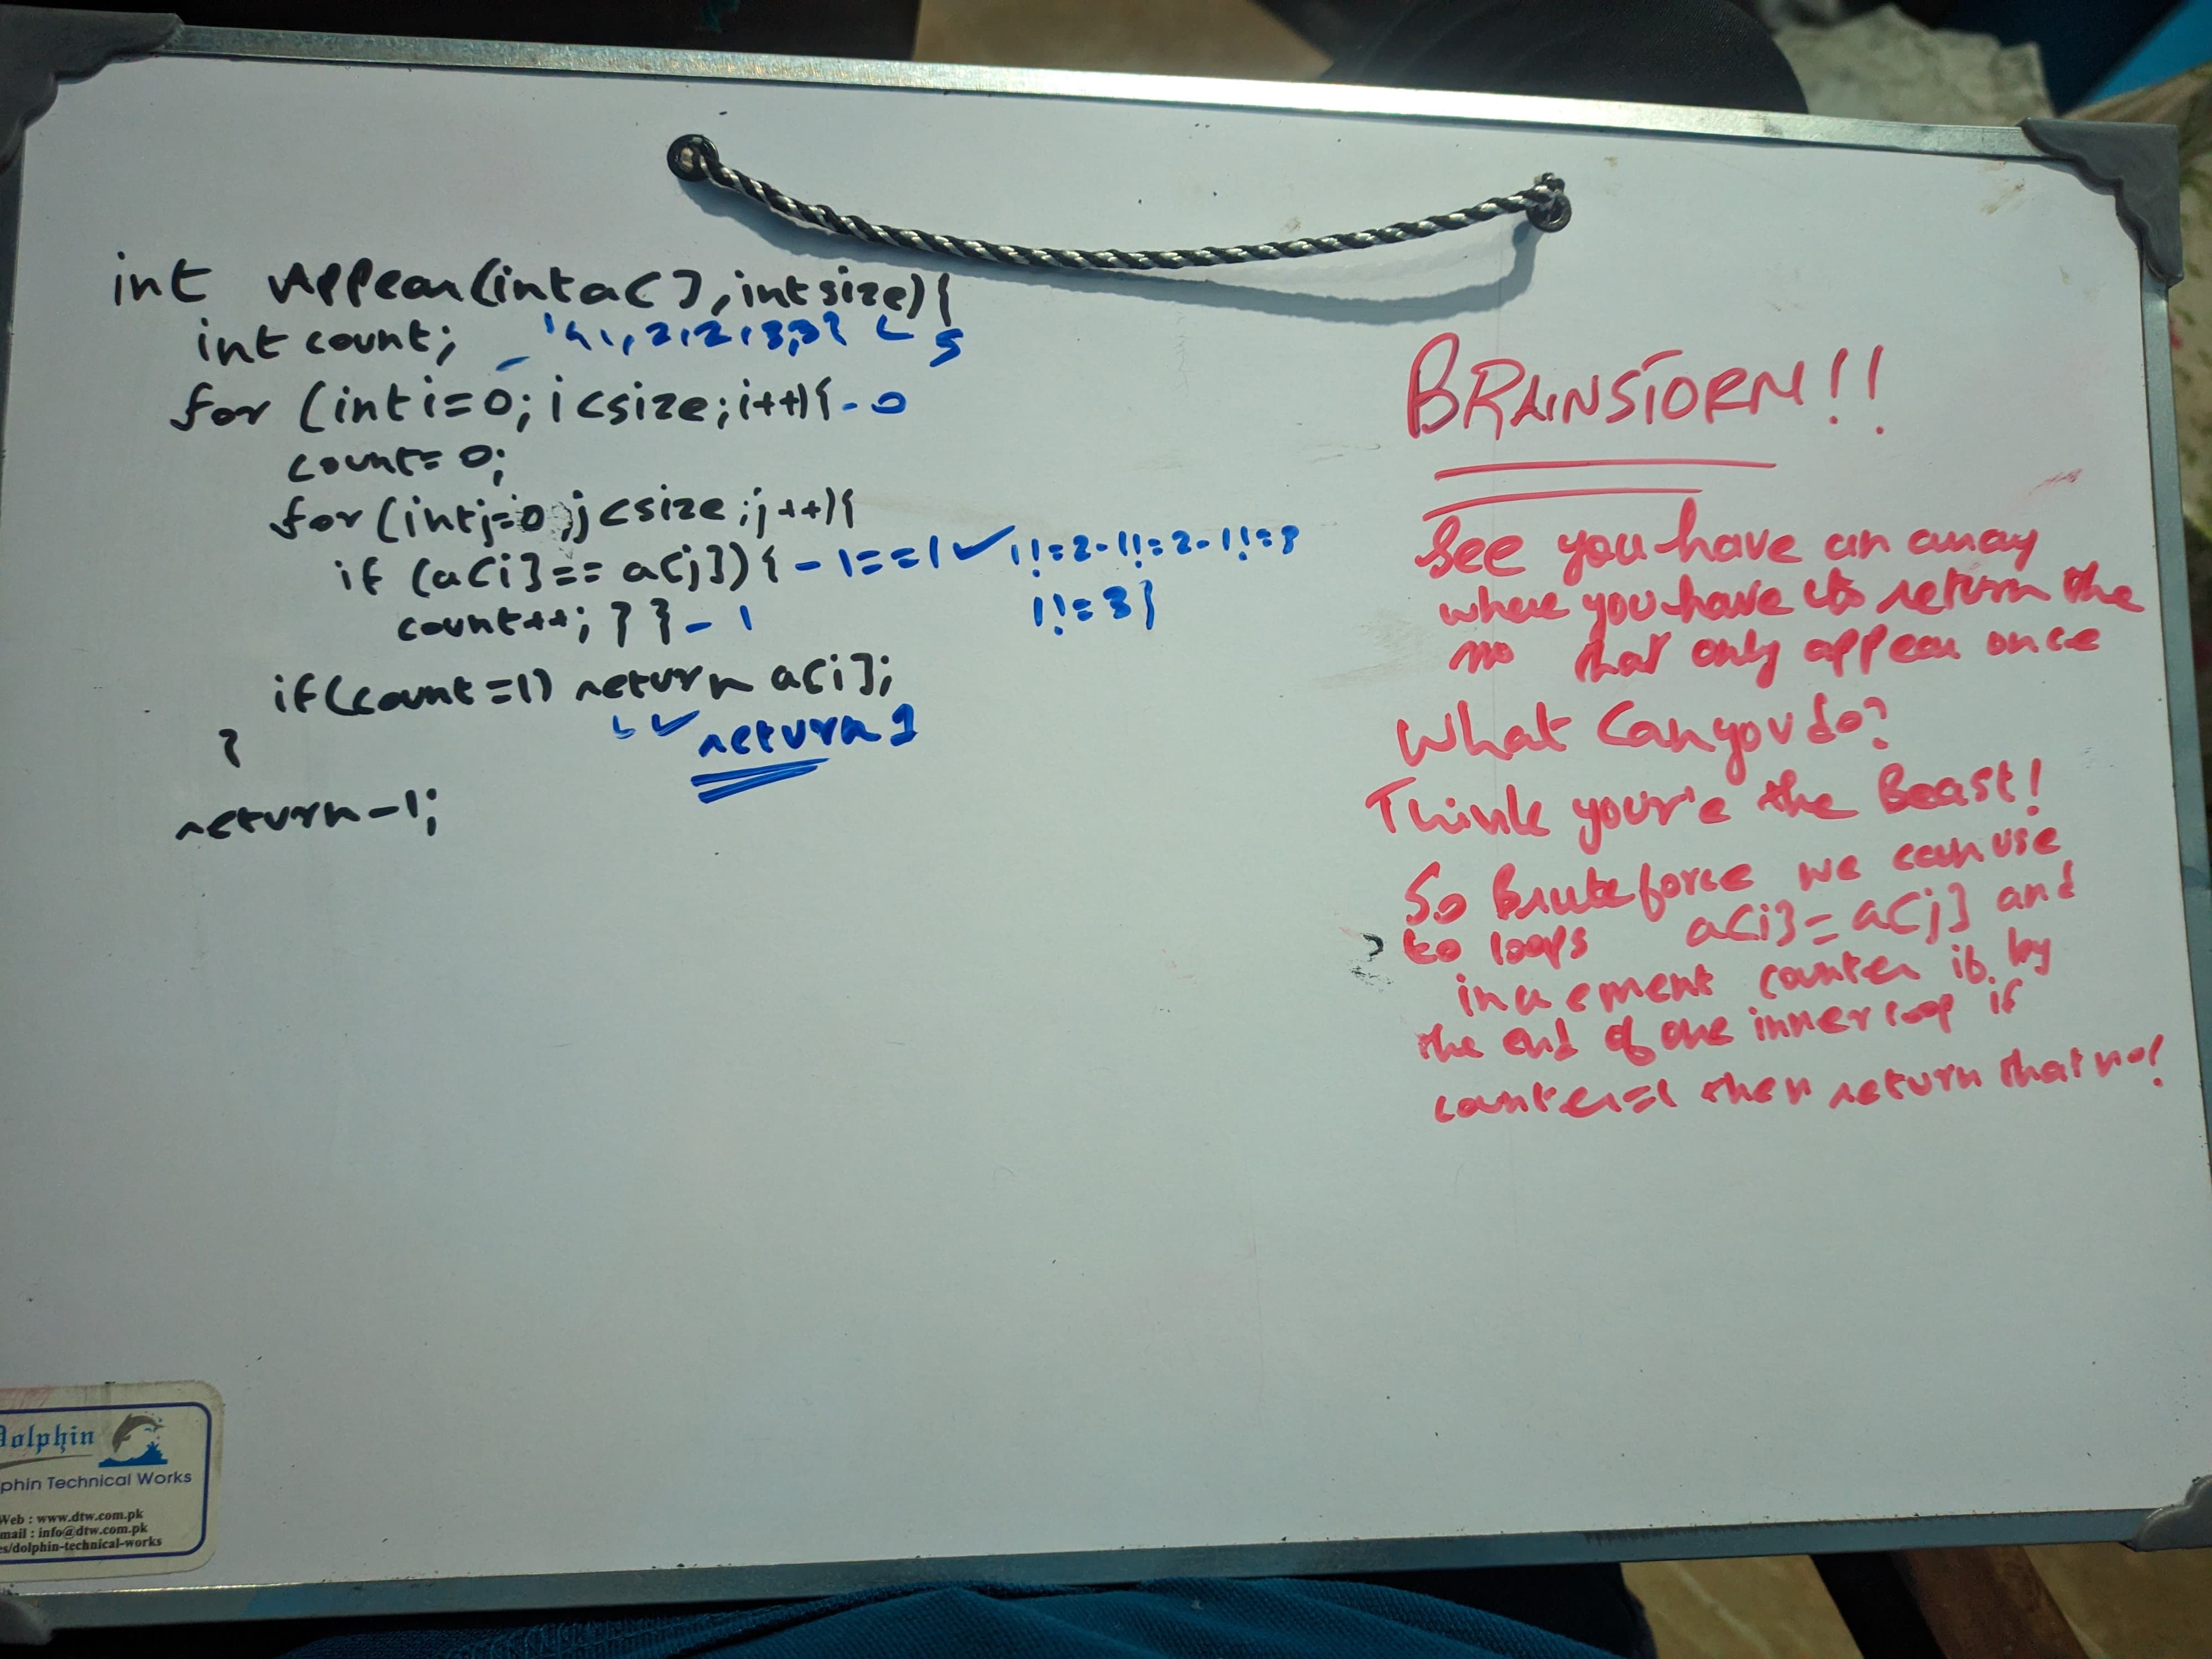 int Appear(int a[], int size){
int count; {1,2,2,3,3} 5
for (int i=0; i<size; i++){ - 0
count= 0;
for (int j=0; j<size; j++){
if (a[i]== a[j]){ - 1==1 ✓ 1!=2 - 1!=2 - 1!=3
1!=3}
count++; } } - 1
if(count=1) return a[i];
✓ return 1
}
return -1;
BRAINSTORM!!
See you have an array
where you have to return the
no that only appear once
What can you do?
Think your'e the Beast!
So Brute force we can use
to loops a[i]=a[j] and
increment counter if by
the end of one inner loop if
counter=1 then return that no!
Dolphin
phin Technical Works
Web : www.dtw.com.pk
mail : info@dtw.com.pk
es/dolphin-technical-works